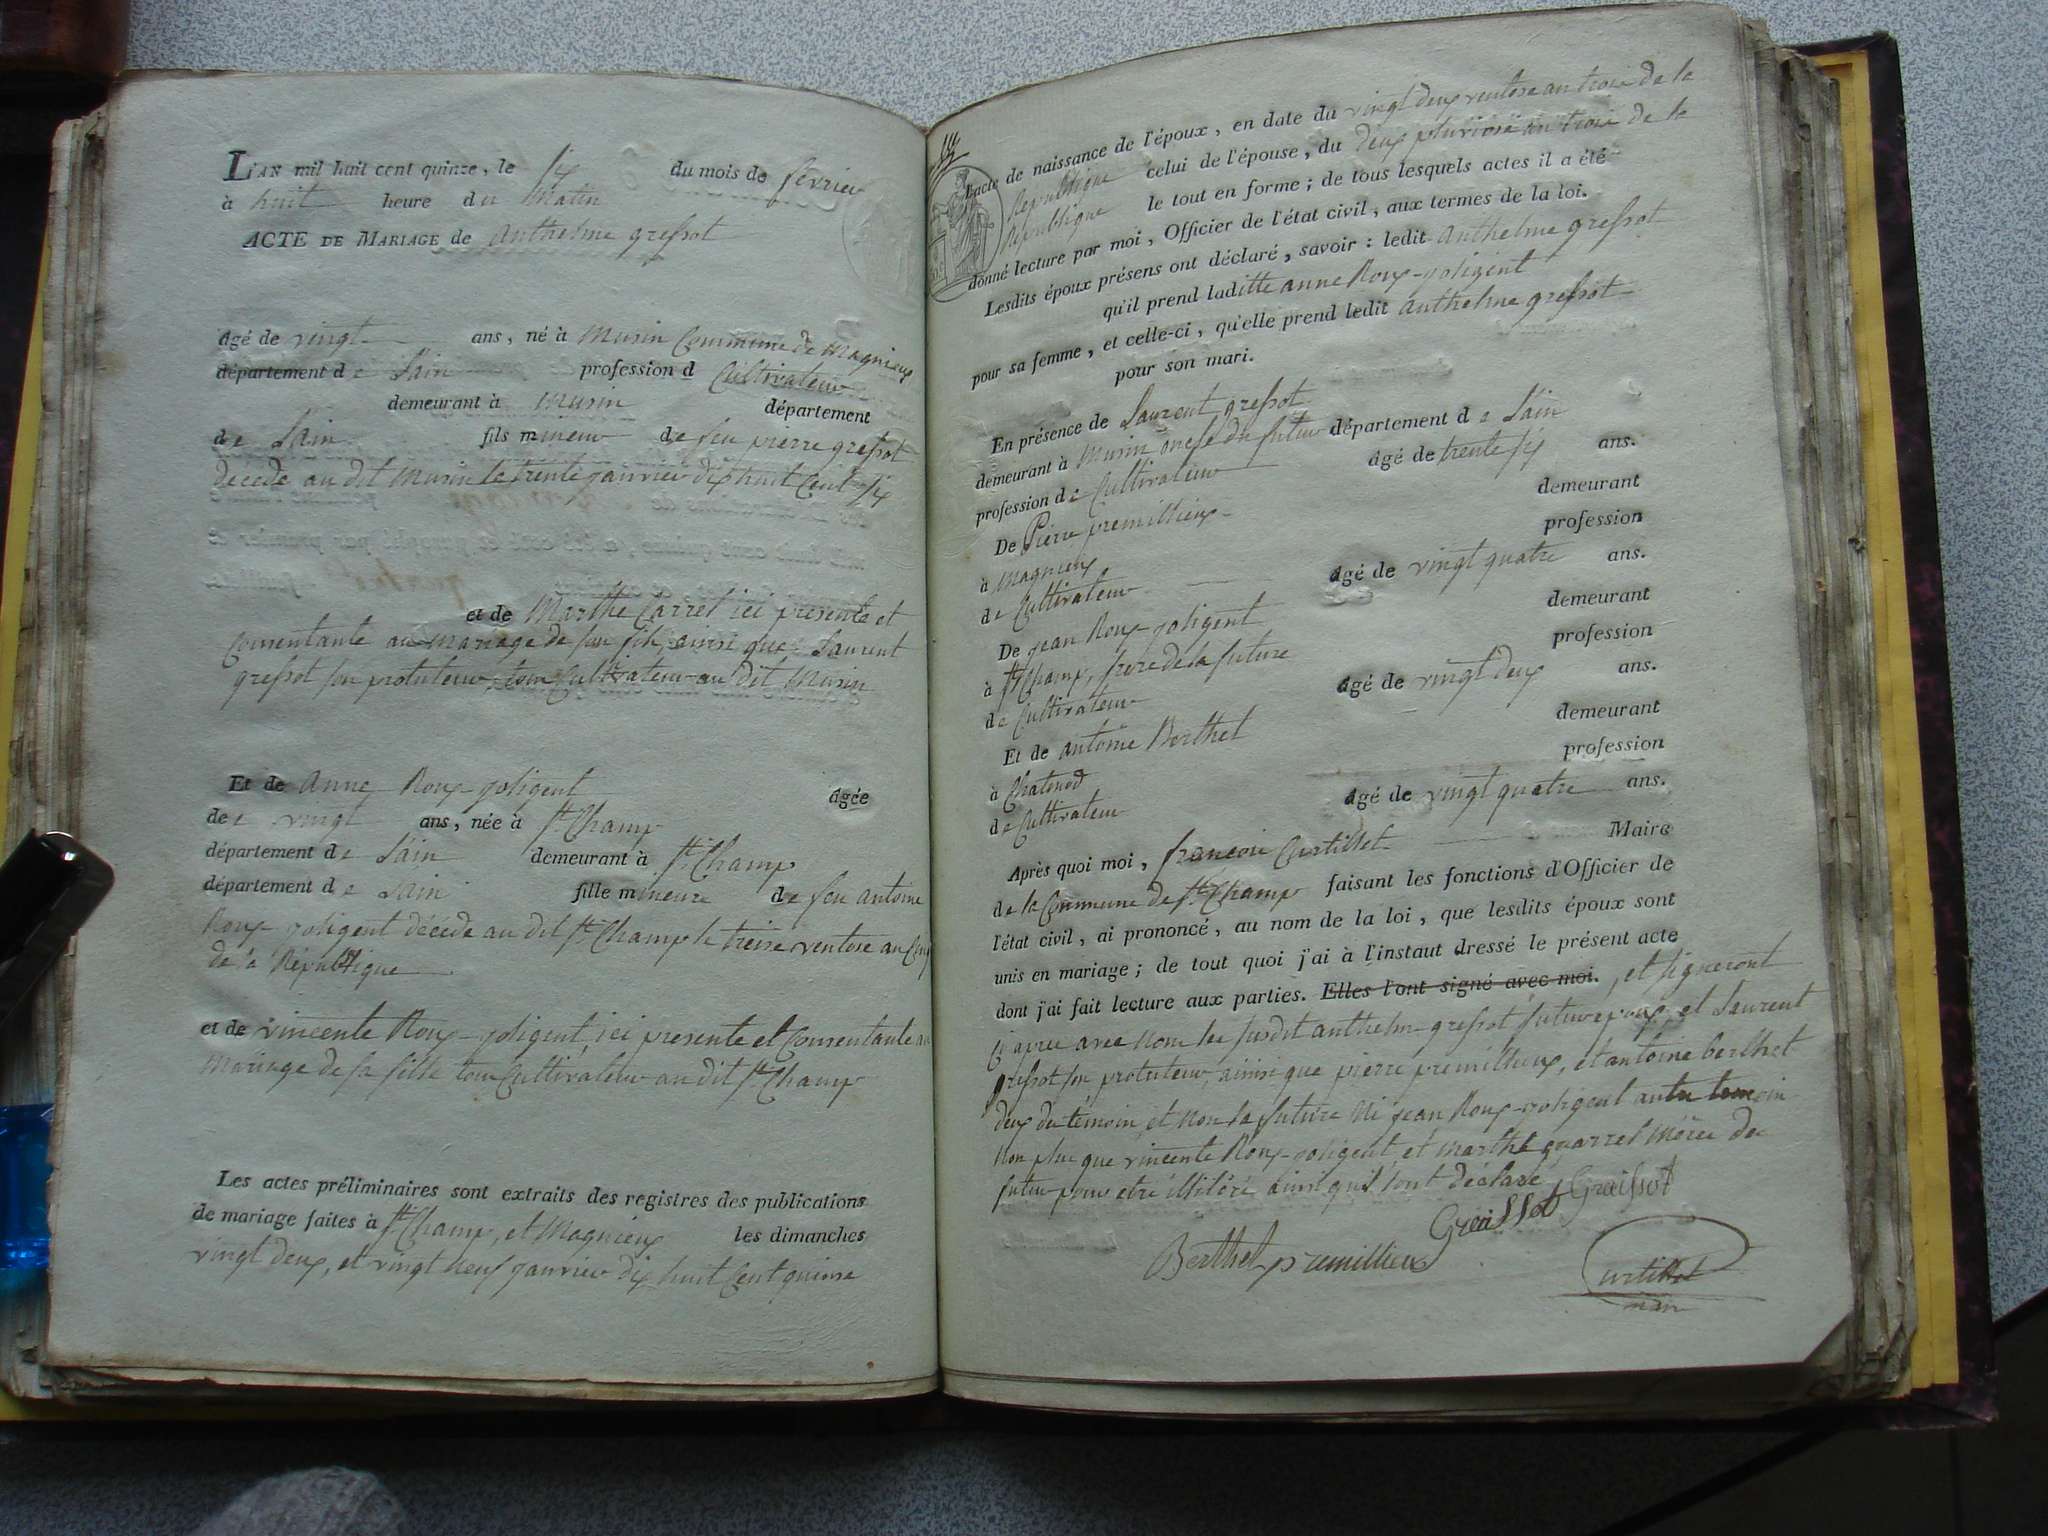 L'AN mil huit cent quinze, le six du mois de février
à huit heure du Matin
ACTE DE MARIAGE de Anthelme greffot
âgé de vingt ans, né à Musin Commune de Magnieux
département de Lain profession d Cultivateur
demeurant à Musin département
de Lain fils mineur de feu pierre greffot
décédé au dit Musin le trente janvier dix huit Cent six
et de Marthe Carrel ici presente et
Consentante au mariage de son fils, ainsi que Laurent
greffot son protuteur, tous Cultivateur au dit Musin
Et de Anne Roux-joligent âgée
de vingt ans, née à St Champ
département de Lain demeurant à St Champ
département de Lain fille mineure de feu antoine
Roux-joligent décédé au dit St Champ le treize ventose an Cinq
de la République
et de vincente Roux-joligent, ici presente et Consentante au
Mariage de sa fille tous Cultivateur au dit St Champ
Les actes préliminaires sont extraits des registres des publications
de mariage faites à St Champ, et Magnieux les dimanches
vingt deux, et vingt neuf janvier dix huit Cent quinze
l'acte de naissance de l'époux, en date du vingt deux ventose an trois de la
République celui de l'épouse, du deux pluviose an trois de la
République le tout en forme; de tous lesquels actes il a été
donné lecture par moi, Officier de l'état civil, aux termes de la loi.
Lesdits époux présens ont déclaré, savoir: ledit Anthelme greffot
qu'il prend laditte anne Roux-joligent
pour sa femme, et celle-ci, qu'elle prend ledit Anthelme greffot
pour son mari.
En présence de Laurent greffot
demeurant à Musin oncle du futur département de Lain
profession de Cultivateur âgé de trente six ans.
De Pierre premillieux demeurant
à Magnieux profession
de Cultivateur âgé de vingt quatre ans.
De jean Roux-joligent demeurant
à St Champ, frere de la future profession
de Cultivateur âgé de vingt deux ans.
Et de antoine Berthet demeurant
à Chatonod profession
de Cultivateur âgé de vingt quatre ans.
Après quoi moi, françois Curtillet Maire
de la Commune de St Champ faisant les fonctions d'Officier de
l'état civil, ai prononcé, au nom de la loi, que lesdits époux sont
unis en mariage; de tout quoi j'ai à l'instant dressé le présent acte
dont j'ai fait lecture aux parties. Elles l'ont signé avec moi., et signeront
Ci après avec Nous les susdit anthelme greffot futur epoux, et Laurent
greffot son protuteur, ainsi que pierre premillieux, et antoine berthet
deux des témoin, et non la future Ni jean Roux-joligent autre temoin
Non plus que vincente Roux-joligent et marthe quarrel Mères des
futur pour etre illiteré ainsi qu'il l'ont déclaré
Graissot Graissot
Berthet premillieux
Curtillet
maire